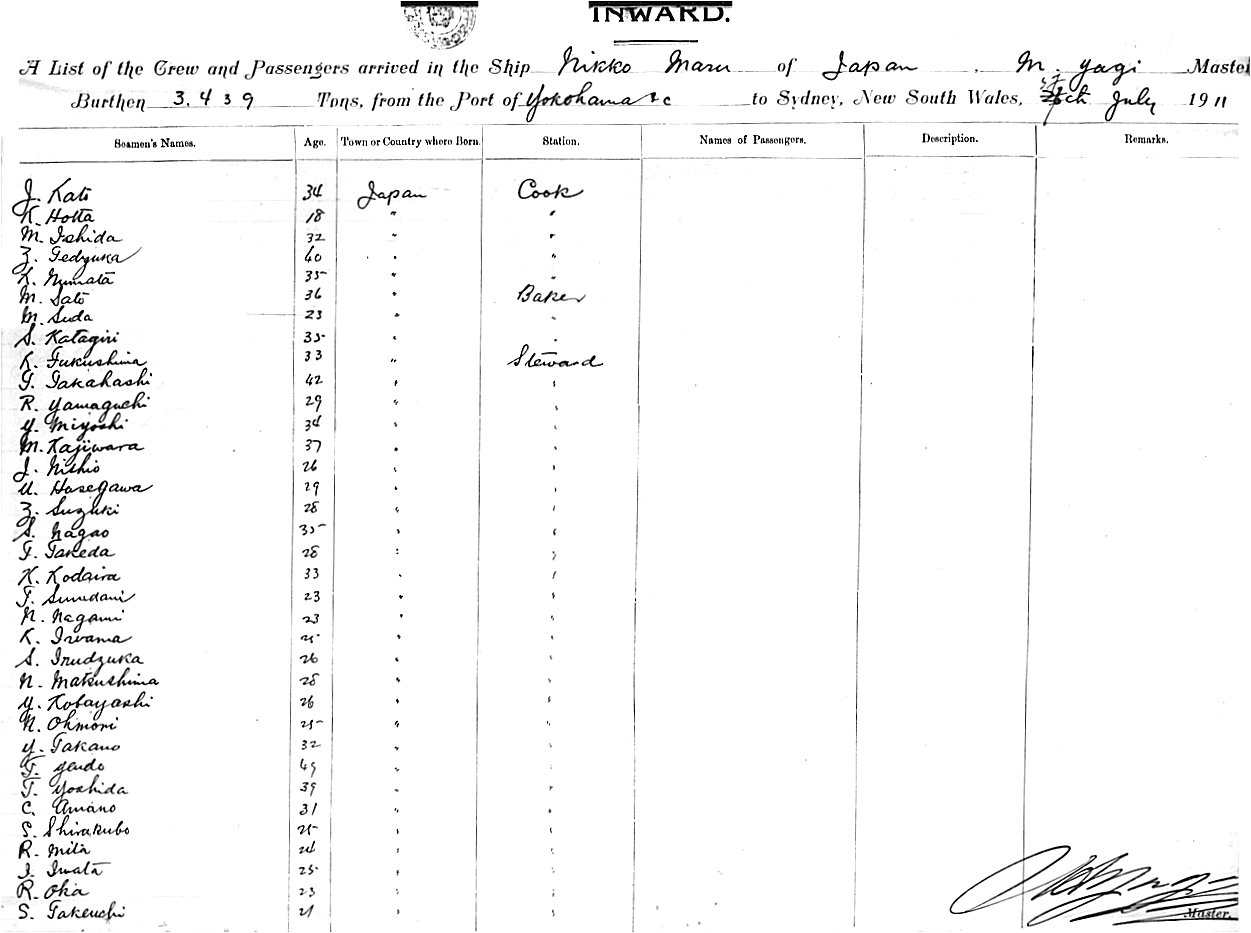 INWARD.
A List of the Crew and Passengers arrived in the Ship Nikko Maru of Japan . M. Yagi Master
Burthen 3.439 Tons, from the Port of Yokohama &c to Sydney, New South Wales, July 1911
Seamen's Names. Age. Town or Country where Born. Station. Names of Passengers. Description. Remarks.
J. Kato 34 Japan Cook
K. Hotta 18 " "
M. Ishida 32 " "
Z. Tedzuka 40 " "
K. Numata 35 " "
M. Sato 36 " Baker
M. Suda 23 " "
S. Katagiri 35 " "
K. Fukushima 33 " Steward
T. Takahashi 42 " "
R. Yamaguchi 29 " "
Y. Miyoshi 34 " "
M. Kajiwara 37 " "
J. Nishio 26 " "
U. Hasegawa 29 " "
Z. Suzuki 28 " "
S. Nagao 35 " "
T. Takeda 28 " "
K. Kodaira 33 " "
T. 23 " "
N. Nagami 23 " "
K. 25 " "
S. Inudzuka 26 " "
N. Makushima 28 " "
Y. Kobayashi 26 " "
N. Ohmori 25 " "
Y. Takano 32 " "
T. Yendo 49 " "
T. Yoshida 39 " "
C. Amano 31 " "
S. Shirakubo 25 " "
R. Mita 24 " "
I. Iwata 25 " "
R. Oka 23 " "
S. Takeuchi 21 " "
Master.